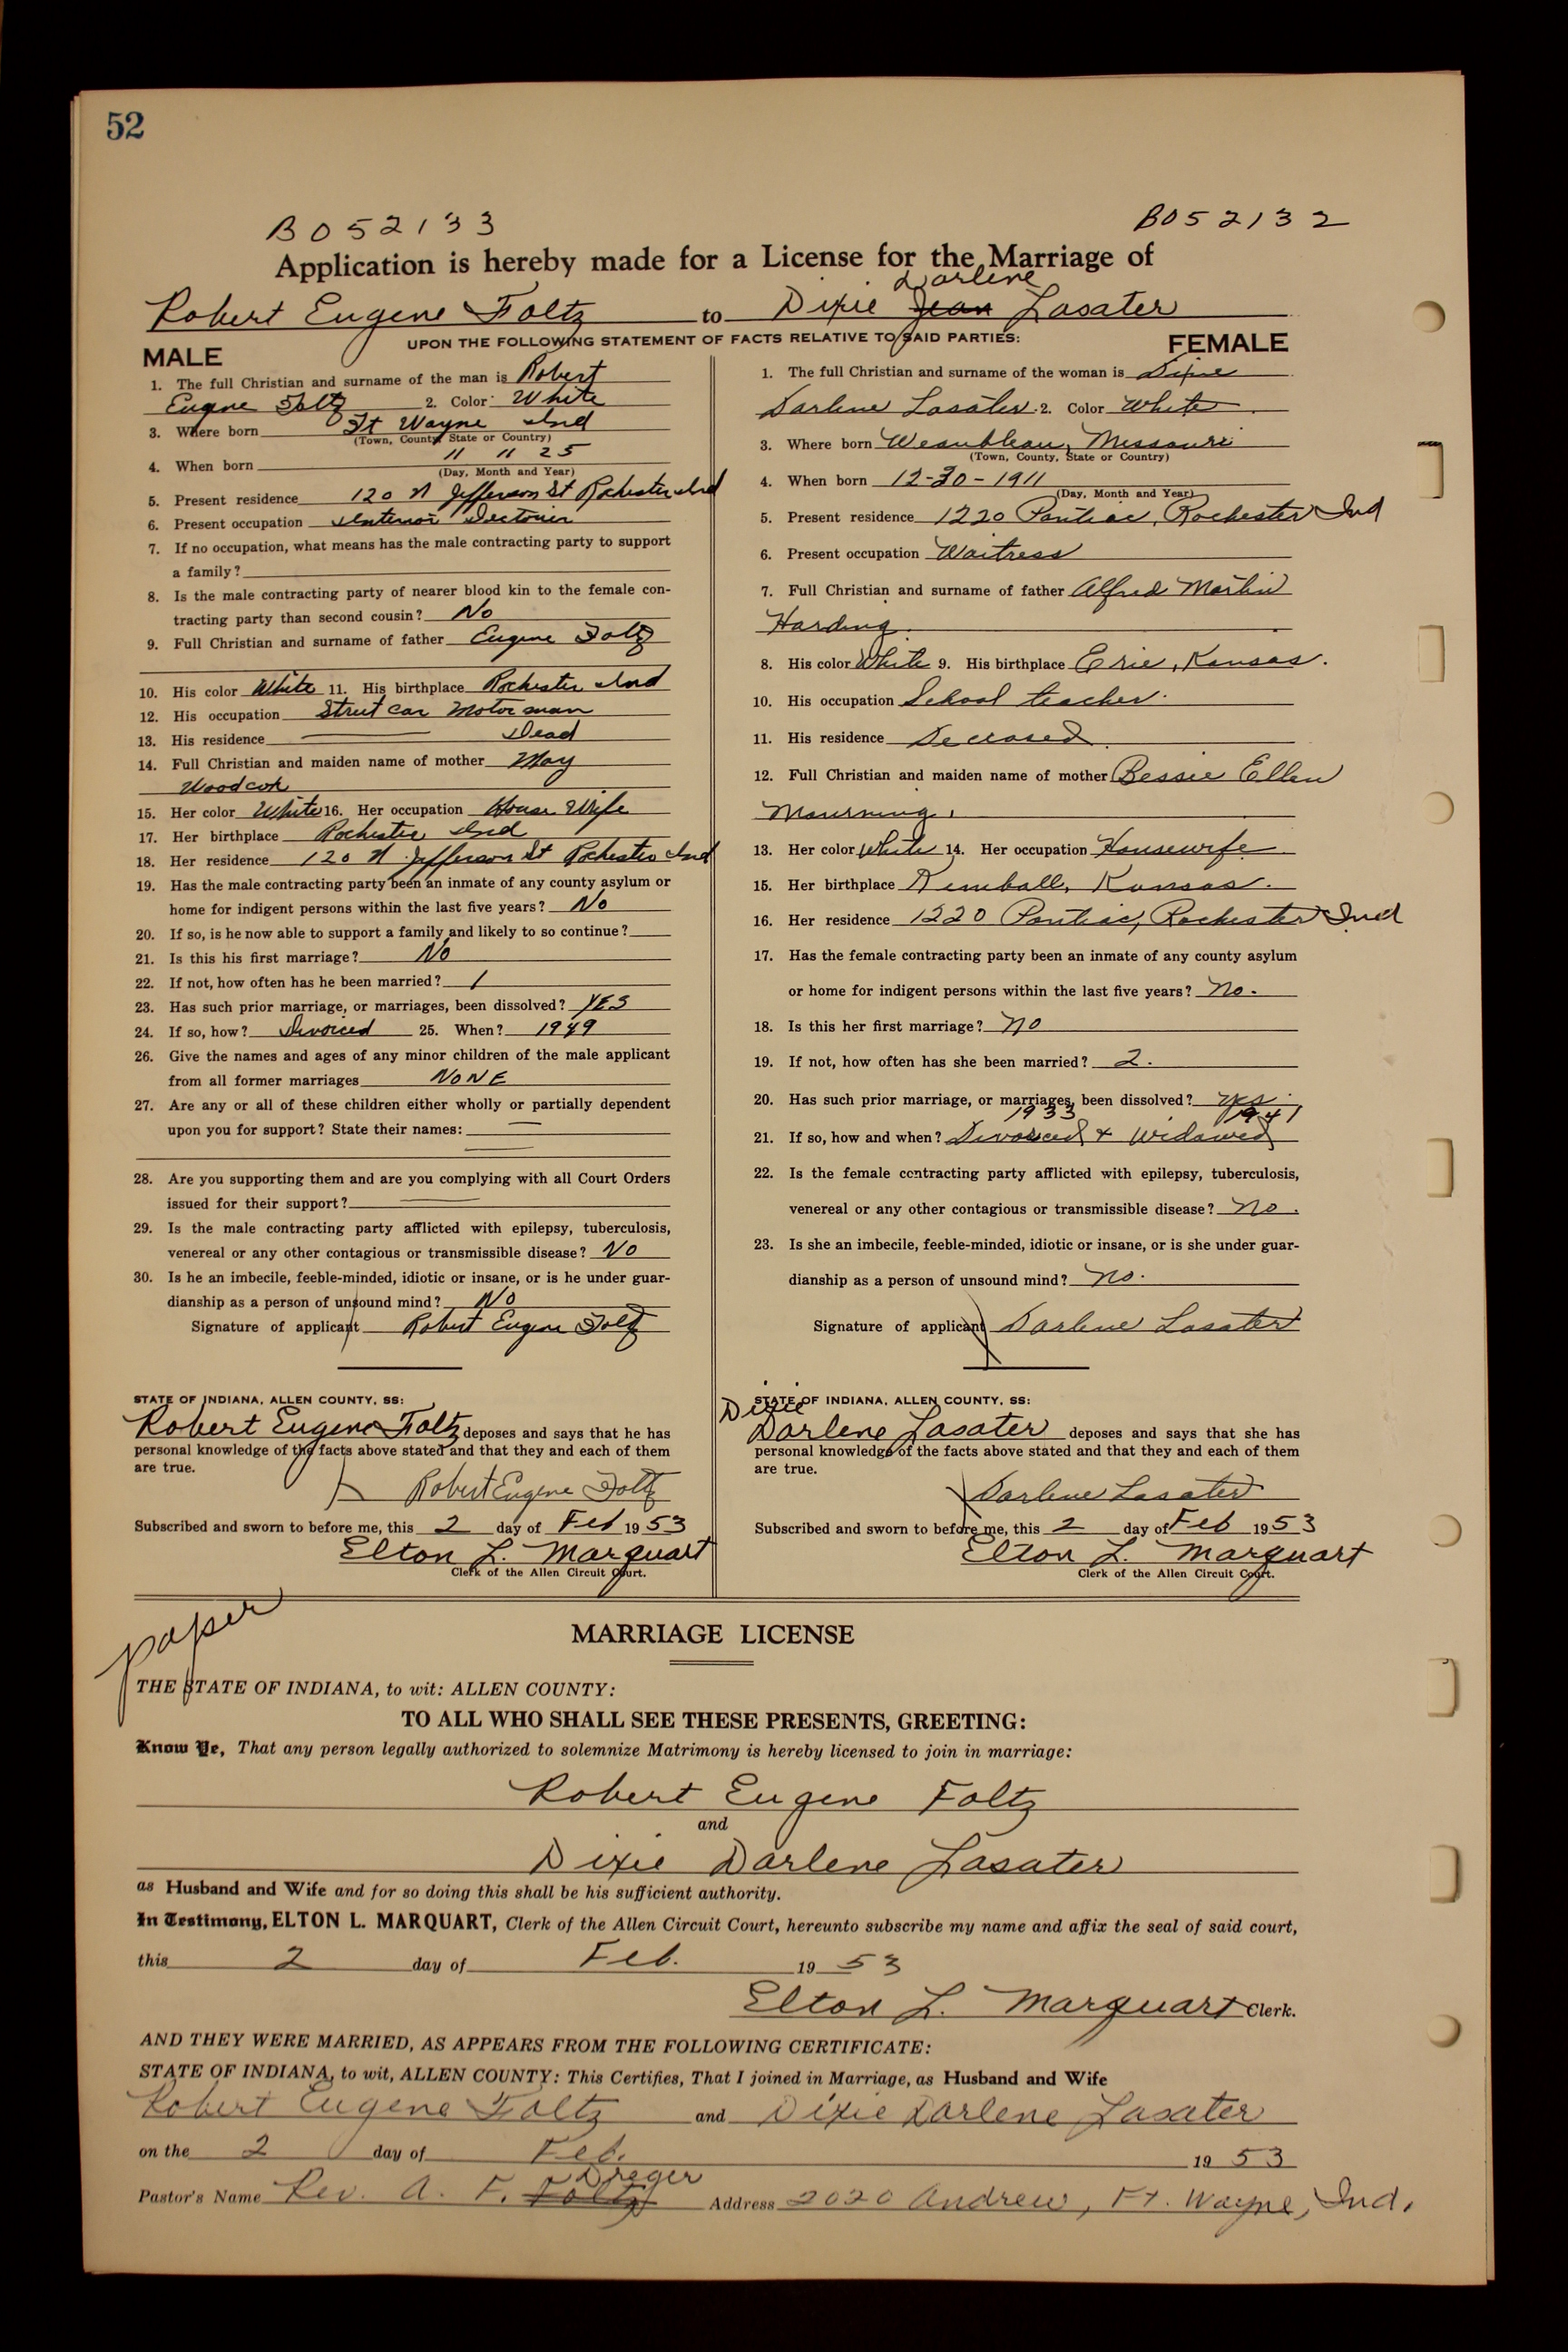 52
B052133
B052132
Application is hereby made for a License for the Marriage of
Darlene
Robert Eugene Foltz to Dixie Jean Lasater
UPON THE FOLLOWING STATEMENT OF FACTS RELATIVE TO SAID PARTIES:
MALE
1. The full Christian and surname of the man is Robert
Eugene Foltz 2. Color White
3. Where born Ft Wayne Ind
(Town, County, State or Country)
4. When born 11 11 25
(Day, Month and Year)
5. Present residence 120 N Jefferson St Rochester Ind
6. Present occupation Interior
7. If no occupation, what means has the male contracting party to support
a family?
8. Is the male contracting party of nearer blood kin to the female con-
tracting party than second cousin? No
9. Full Christian and surname of father Eugene Foltz
10. His color White 11. His birthplace Rochester Ind
12. His occupation Street Car Motor man
13. His residence Dead
14. Full Christian and maiden name of mother May
Woodcok
15. Her color White 16. Her occupation House Wife
17. Her birthplace Rochester Ind
18. Her residence 120 N Jefferson St Rochester Ind
19. Has the male contracting party been an inmate of any county asylum or
home for indigent persons within the last five years? No
20. If so, is he now able to support a family and likely to so continue?
21. Is this his first marriage? No
22. If not, how often has he been married? 1
23. Has such prior marriage, or marriages, been dissolved? YES
24. If so, how? Divorced 25. When? 1949
26. Give the names and ages of any minor children of the male applicant
from all former marriages NONE
27. Are any or all of these children either wholly or partially dependent
upon you for support? State their names:
28. Are you supporting them and are you complying with all Court Orders
issued for their support?
29. Is the male contracting party afflicted with epilepsy, tuberculosis,
venereal or any other contagious or transmissible disease? No
30. Is he an imbecile, feeble-minded, idiotic or insane, or is he under guar-
dianship as a person of unsound mind? No
Signature of applicant Robert Eugene Foltz
STATE OF INDIANA, ALLEN COUNTY, SS:
Robert Eugene Foltz deposes and says that he has
personal knowledge of the facts above stated and that they and each of them
are true.
Robert Eugene Foltz
Subscribed and sworn to before me, this 2 day of Feb 1953
Elton L. Marquart
Clerk of the Allen Circuit Court.
FEMALE
1. The full Christian and surname of the woman is Dixie
Darlene Lasater. 2. Color White
3. Where born Weaubleau, Missouri
(Town, County, State or Country)
4. When born 12-30-1911
(Day, Month and Year)
5. Present residence 1220 Pontiac, Rochester Ind
6. Present occupation Waitress
7. Full Christian and surname of father Alfred Martin
Harding.
8. His color White 9. His birthplace Erie, Kansas.
10. His occupation School teacher.
11. His residence Deceased.
12. Full Christian and maiden name of mother Bessie Ellen
Mourning.
13. Her color White 14. Her occupation Housewife
15. Her birthplace Kimball, Kansas.
16. Her residence 1220 Pontiac, Rochester Ind
17. Has the female contracting party been an inmate of any county asylum
or home for indigent persons within the last five years? No.
18. Is this her first marriage? No
19. If not, how often has she been married? 2.
20. Has such prior marriage, or marriages, been dissolved? yes.
1933 1941
21. If so, how and when? Divorced & Widowed
22. Is the female contracting party afflicted with epilepsy, tuberculosis,
venereal or any other contagious or transmissible disease? No.
23. Is she an imbecile, feeble-minded, idiotic or insane, or is she under guar-
dianship as a person of unsound mind? No.
Signature of applicant Darlene Lasater
STATE OF INDIANA, ALLEN COUNTY, SS:
Dixie
Darlene Lasater deposes and says that she has
personal knowledge of the facts above stated and that they and each of them
are true.
Darlene Lasater
Subscribed and sworn to before me, this 2 day of Feb 1953
Elton L. Marquart
Clerk of the Allen Circuit Court.
paper
MARRIAGE LICENSE
THE STATE OF INDIANA, to wit: ALLEN COUNTY:
TO ALL WHO SHALL SEE THESE PRESENTS, GREETING:
Know Ye, That any person legally authorized to solemnize Matrimony is hereby licensed to join in marriage:
Robert Eugene Foltz
and
Dixie Darlene Lasater
as Husband and Wife and for so doing this shall be his sufficient authority.
In Testimony, ELTON L. MARQUART, Clerk of the Allen Circuit Court, hereunto subscribe my name and affix the seal of said court,
this 2 day of Feb. 1953
Elton L. Marquart Clerk.
AND THEY WERE MARRIED, AS APPEARS FROM THE FOLLOWING CERTIFICATE:
STATE OF INDIANA, to wit, ALLEN COUNTY: This Certifies, That I joined in Marriage, as Husband and Wife
Robert Eugene Foltz and Dixie Darlene Lasater
on the 2 day of Feb. 1953
Dreger
Pastor's Name Rev. A. F. Foltz Address 2020 Andrew, Ft. Wayne, Ind.